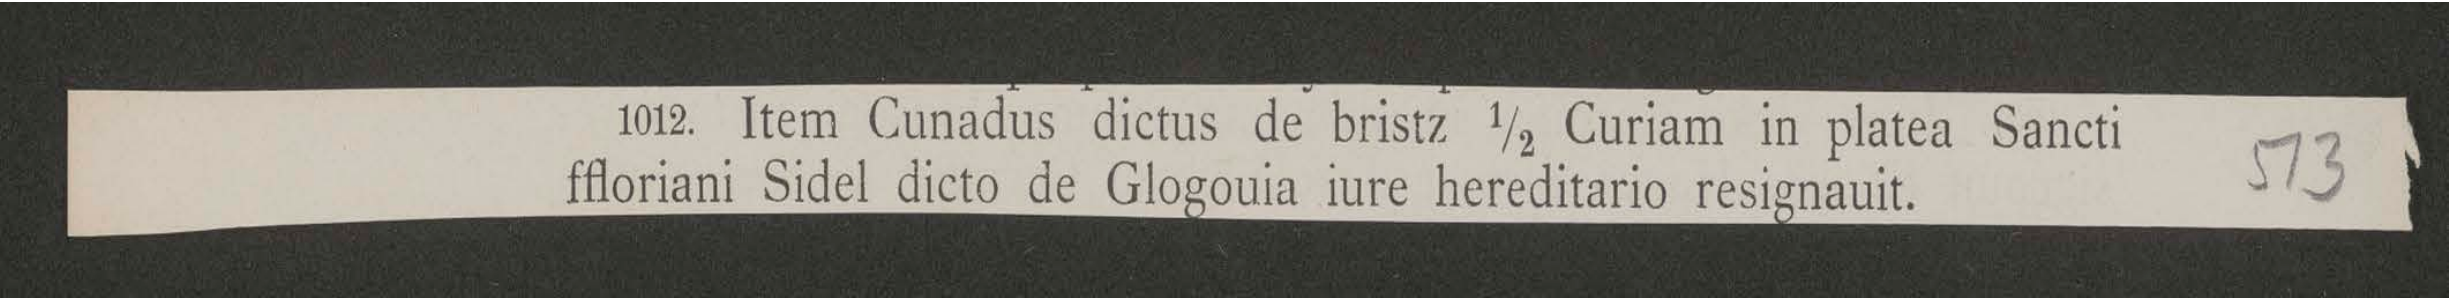 1012. Item Cunadus dictus de bristz 1/2 Curiam in platea Sancti
ffloriani Sidel dicto de Glogouia iure hereditario resignauit.
513